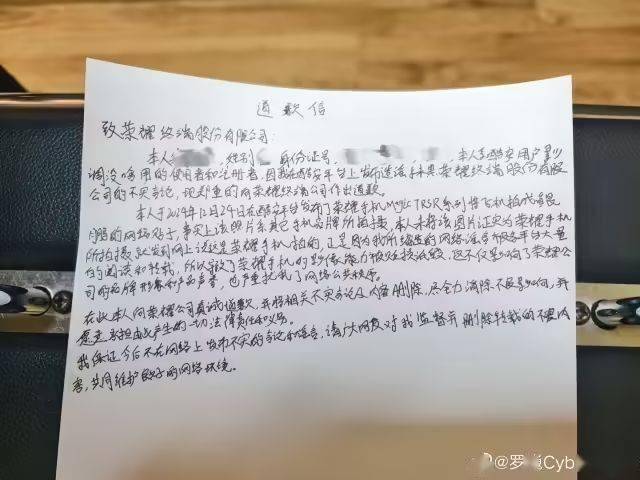 道歉信
致荣耀终端股份有限公司:
本人 ,性别 身份证号, ,本人系酷安用户
调没啥用的使用者和注册者,因我在酷安平台上发布造谣 荣耀终端股份有限
公司的不实言论,现郑重的向荣耀终端公司作出道歉。
本人于2024年12月24日在酷安平台发布了荣耀手机Magic7RSR系列 飞机拍
的网络贴子,事实上该照片系其它手机品牌所拍摄,本人未将该图片证实为荣耀手机
所拍摄就发到网上说这是荣耀手机拍的,正是因为我所编造的网络谣言 平台大量
的阅读和转载,所以导致了荣耀手机的影像能力被 ,这不仅影响了荣耀公
司的品牌形象和产品声誉,也严重扰乱了网络公共秩序。
在此本人向荣耀公司真诚道歉,并将相关不实言论及内容删除,尽全力消除不良影响,并
愿意承担由此产生的一切法律责任和义务。
我保证今后不在网络上发布不实的言论和谣言,请广大网友对我监督并删除转载的不要内
容,共同维护良好的网络环境。
@罗 Cyb